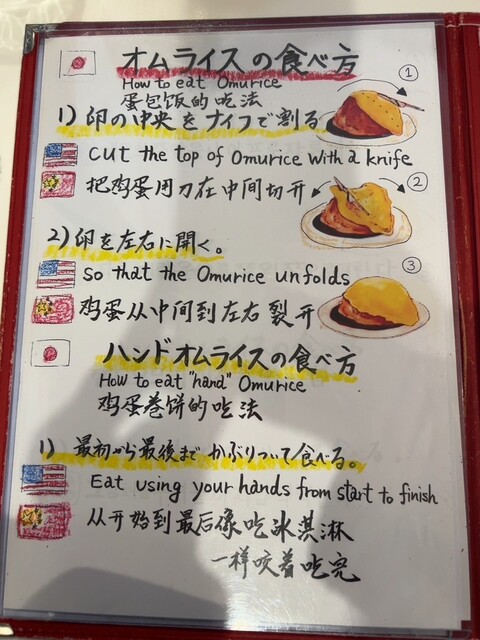 オムライスの食べ方
①
How to eat Omurice
蛋包饭的吃法
1) 卵の中央をナイフで割る
cut the top of Omurice with a knife
把鸡蛋用刀在中间切开
②
2) 卵を左右に開く。
so that the Omurice unfolds
③
鸡蛋从中间到左右裂开
ハンドオムライスの食べ方
How to eat "hand" Omurice
鸡蛋卷饼的吃法
1) 最初から最後までかぶりついて食べる。
Eat using your hands from start to finish
从开始到最后像吃冰淇淋
一样咬着吃完